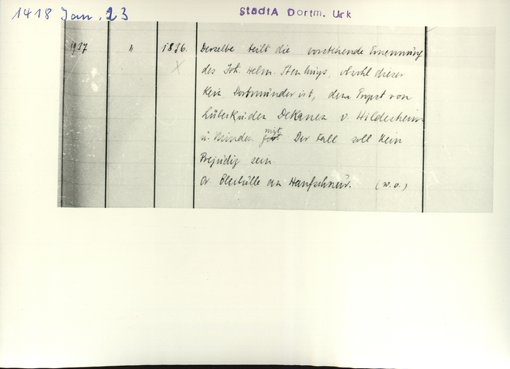 1418 Jan. 23
StadtA Dortm. Urk
1917 " 1876. Derselbe teilt die vorstehende Ernennung
des Joh. Helm. Stenhings, obwohl dieser
kein Dortmunder ist, dem Propst von
Lübeck u. den Dekanen v. Hildesheim
u. Minden mit. Der Fall soll kein
Präjudiz sein
Or. Bleibulle an Hanfschnur. (w. o.)